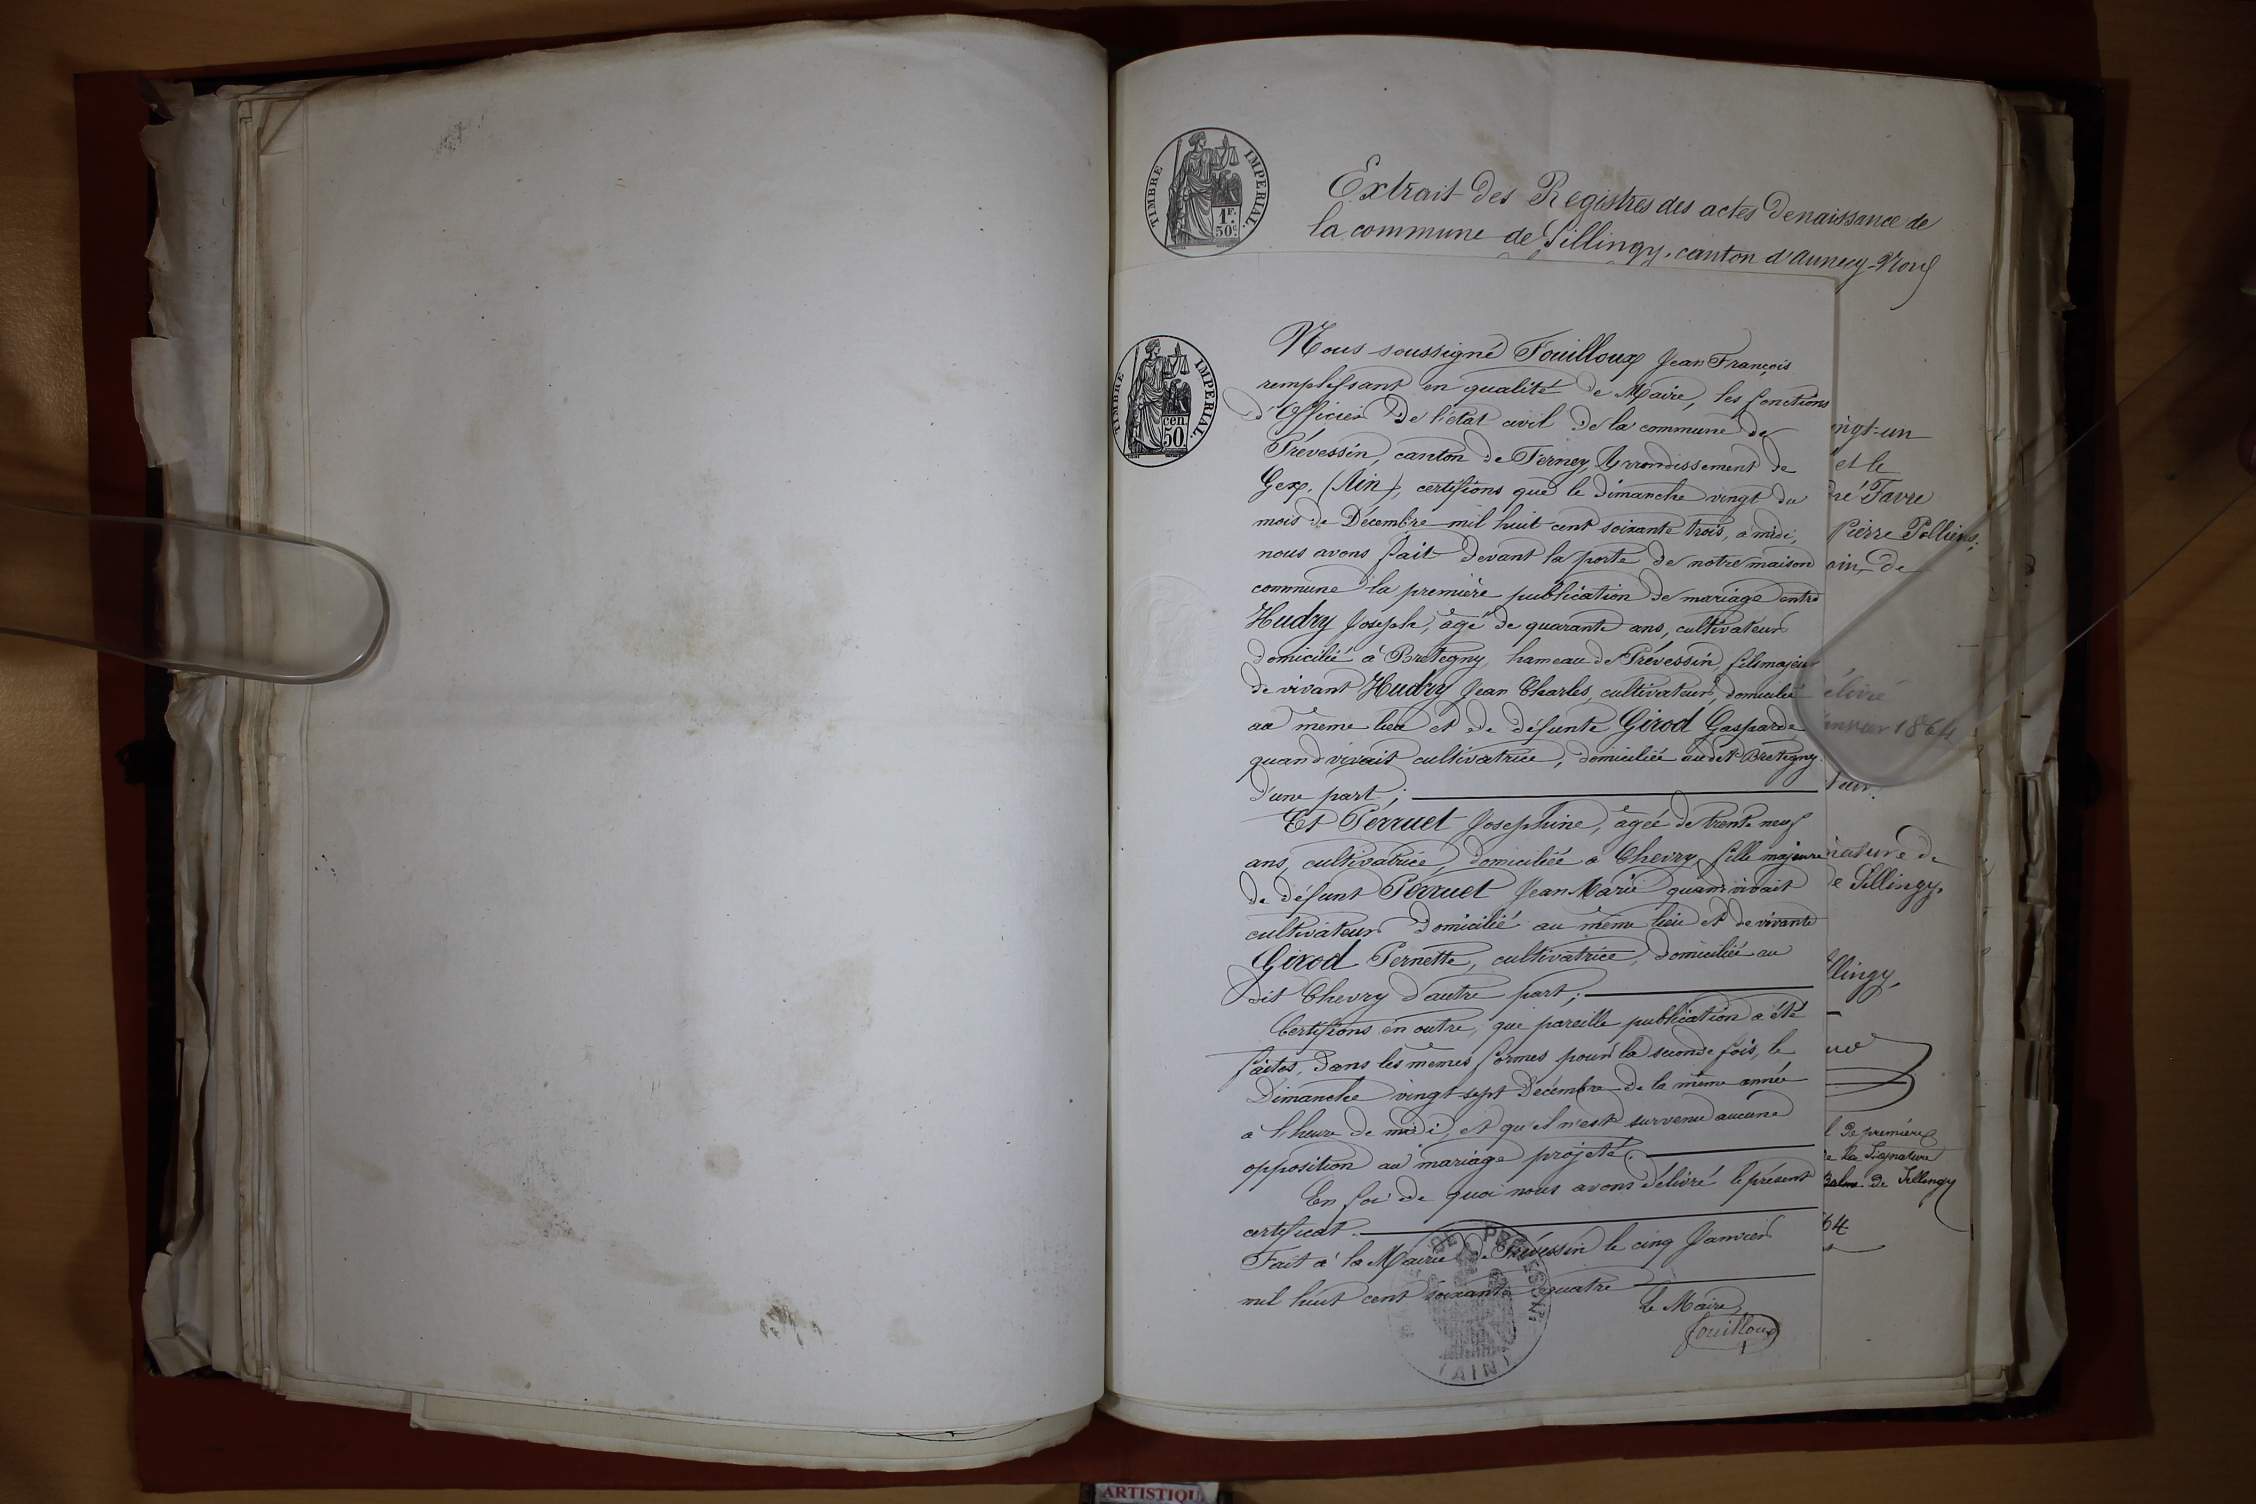 TIMBRE IMPERIAL.
1F. 50c.
Extrait des Registres des actes de naissance de
la commune de Sillingy, canton d'Annecy-Nord
TIMBRE IMPERIAL.
cen. 50
Nous soussigné Fouilloux Jean François
remplissant en qualité de Maire, les fonctions
d'Officier de l'état civil de la commune de
Prévessin, canton de Ferney, Arrondissement de
Gex, (Ain), certifions que le dimanche vingt du
mois de Décembre mil huit cent soixante trois, à midi,
nous avons fait devant la porte de notre maison
commune la première publication de mariage entre
Hudry Joseph, âgé de quarante ans, cultivateur
domicilié à Bretegny, hameau de Prévessin, fils majeur
de vivant Hudry Jean Charles, cultivateur, domicilié
au même lieu et de défunte Girod Gasparde,
quand vivait cultivatrice, domiciliée audit Bretegny
d'une part;
Et Perruet Josephine, âgée de trente neuf
ans, cultivatrice, domiciliée à Chevry, fille majeure
de défunt Perruet Jean Marie quand vivait
cultivateur domicilié au même lieu et de vivante
Girod Pernette, cultivatrice, domiciliée au
dit Chevry d'autre part;
Certifions en outre, que pareille publication a été
faites, dans les mêmes formes pour la seconde fois, le
Dimanche vingt-sept Décembre de la même année
à l'heure de midi, et qu'il n'est survenu aucune
opposition au mariage projeté.
En foi de quoi nous avons délivré le présent
certificat.
Fait à la Mairie de Prévessin le cinq Janvier
mil huit cent soixante quatre
Le Maire,
Fouilloux
DE PREVESSIN
(AIN)
ingt-un
et le
ré Favre
Pierre Pollien,
oin, de
élivré
anvier 1864
nature de
e Sillingy.
llingy,
l de première
e la Signature
de Sillingy
64
ARTISTIQU